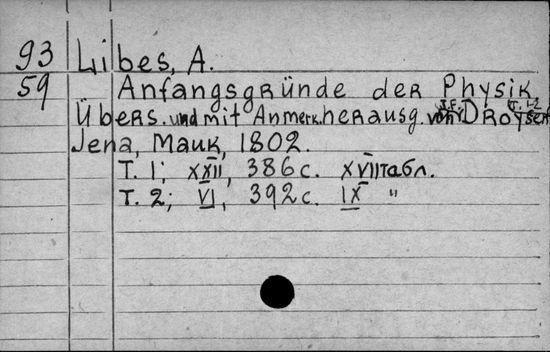 93 Libes, A.
59 Anfangsgründe der Physik. T. 1-2
Übers. und mit Anmerk. herausg. von Droysen
Jena, Mauk, 1802.
T. 1; XXII, 386 с. XVII табл.
T. 2; VI, 392 с. IX "